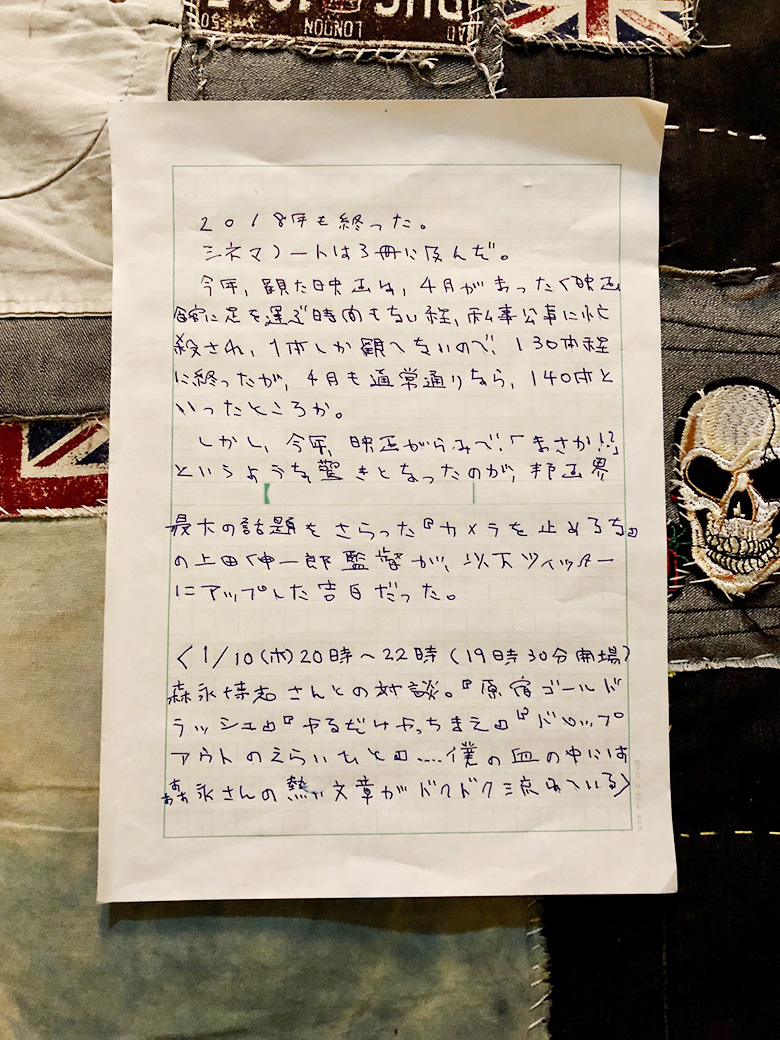 LONDON
2018年も終った。
シネマノートは3冊に及んだ。
今年、観た映画は、4月がまったく映画
館に足を運ぶ時間もない程、私事公事に忙
殺され、1本しか観てないので、130本程
に終ったが、4月も通常通りなら、140本と
いったところか。
しかし、今年、映画がらみで、「まさか!?」
というような驚きとなったのが、邦画界
最大の話題をさらった『カメラを止めるな』
の上田伸一郎監督が、以下ツイッター
にアップした告白だった。
〈1/10(木)20時〜22時(19時30分開場)
森永博志さんとの対談。『原宿ゴールド
ラッシュ』『やるだけやっちまえ』『ドロップ
アウトのえらいひと』....僕の血の中には
森永さんの熱い文章がドクドク流れている〉